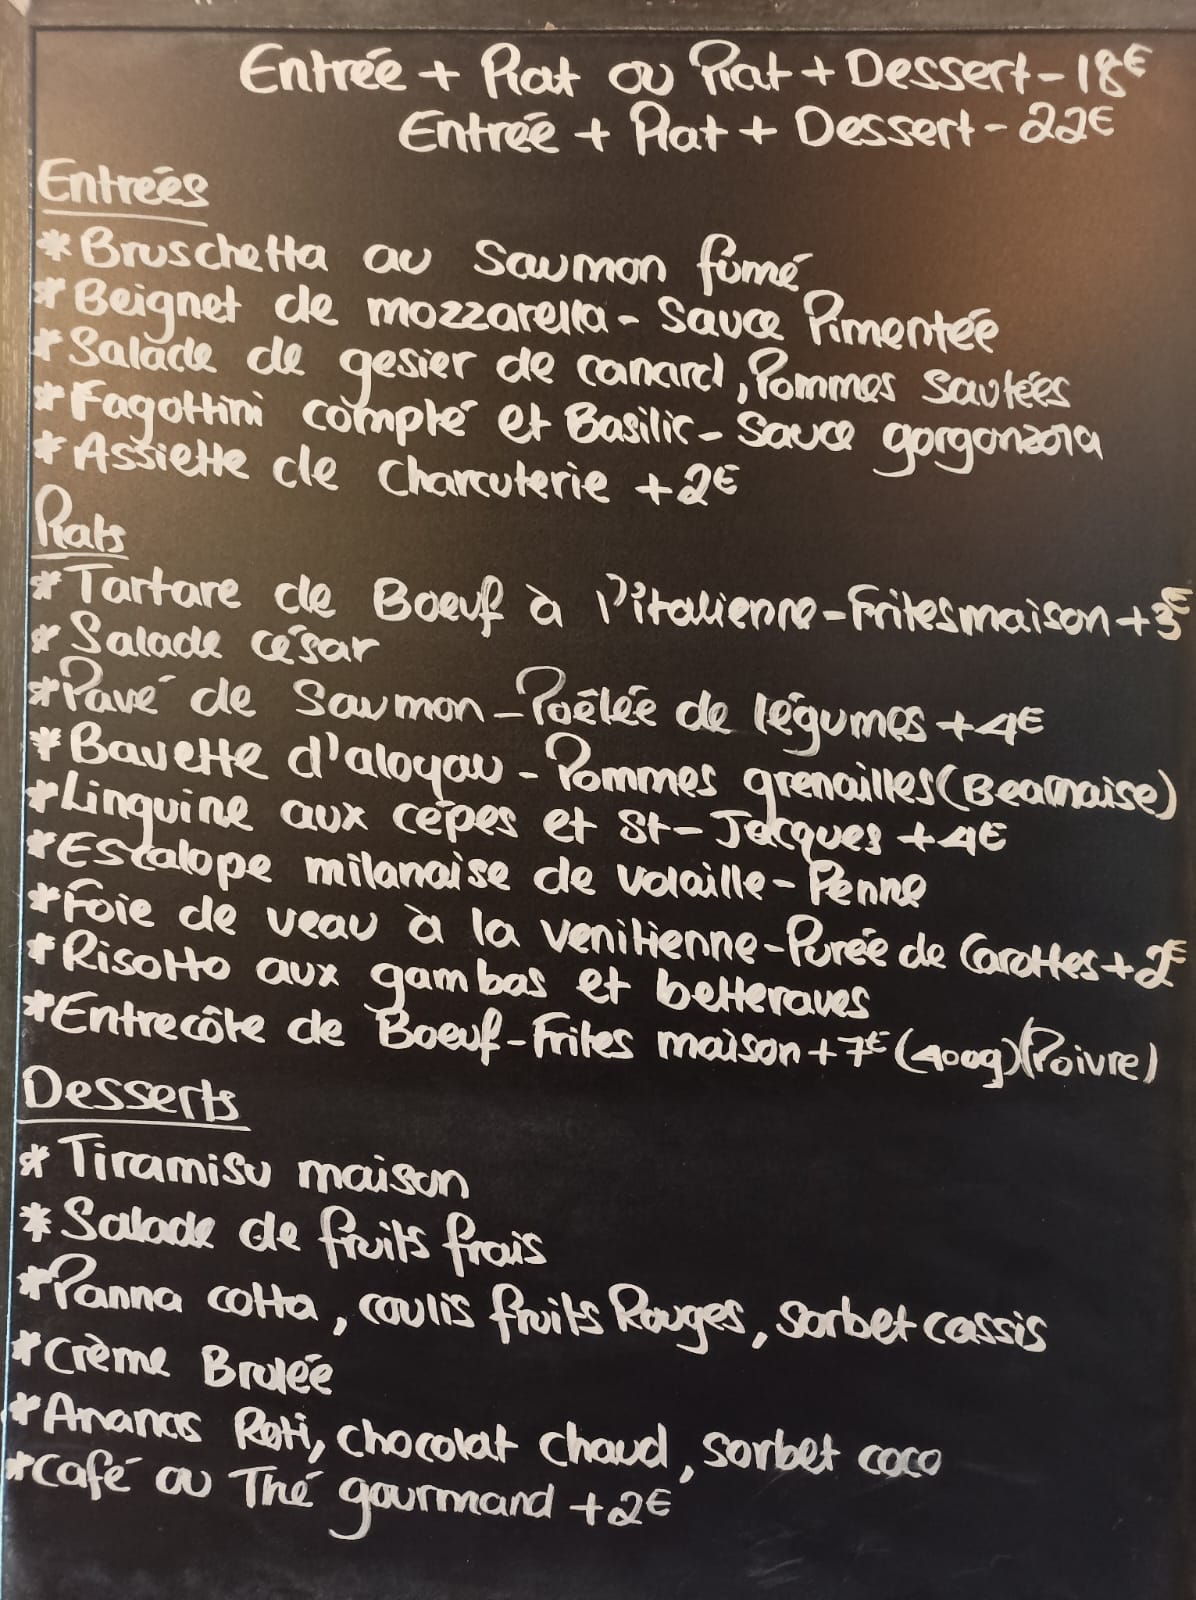 Entrée + Plat ou Plat + Dessert - 18€
Entrée + Plat + Dessert - 22€
Entreés
* Bruschetta au Saumon fumé
* Beignet de mozzarella - Sauce Pimentée
* Salade de gesier de canard, Pommes Sautées
* Fagottini compté et Basilic - Sauce gorgonzola
* Assiette de Charcuterie +2€
Plats
* Tartare de Boeuf à l'italienne - Frites maison +3€
* Salade césar
* Pavé de Saumon - Poêlée de légumes +4€
* Bavette d'aloyau - Pommes grenailles (Bearnaise)
* Linguine aux cèpes et St-Jacques +4€
* Escalope milanaise de volaille - Penne
* Foie de veau à la venitienne - Purée de Carottes +2€
* Risotto aux gambas et betteraves
* Entrecôte de Boeuf - Frites maison +7€ (400g) (Poivre)
Desserts
* Tiramisu maison
* Salade de fruits frais
* Panna cotta, coulis fruits Rouges, sorbet cassis
* Crème Brulée
* Ananas Roti, chocolat chaud, sorbet coco
* Café ou Thé gourmand +2€